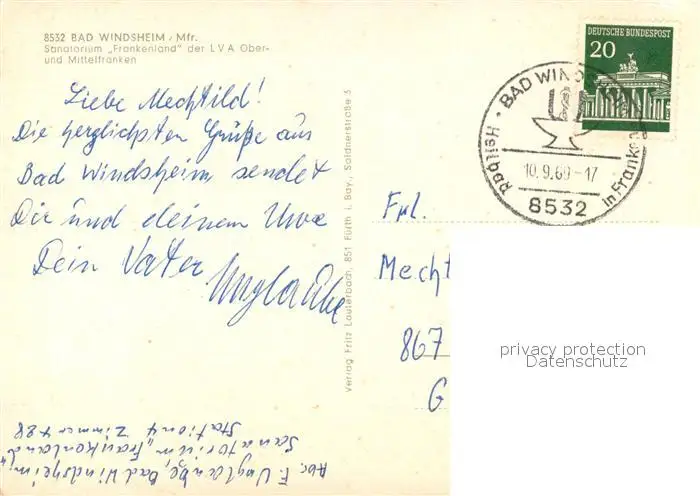 8532 BAD WINDSHEIM / Mfr.
Sanatorium „Frankenland" der LVA Ober-
und Mittelfranken
Liebe Mechtild!
Die herzlichsten Grüße aus
Bad Windsheim sendet
Dir und deinem Uwe
Dein Vater
DEUTSCHE BUNDESPOST
20
BAD WINDSHEIM
Heilbad
in Franken
10.9.69-17
8532
Frl.
Mecht
867
G
Verlag Fritz Lauterbach, 851 Fürth i. Bay., Soldnerstraße 5
privacy protection
Datenschutz
Abs. F. Bad Windsheim,
Sanatorium „Frankenland"
Station 4 Zimmer 488